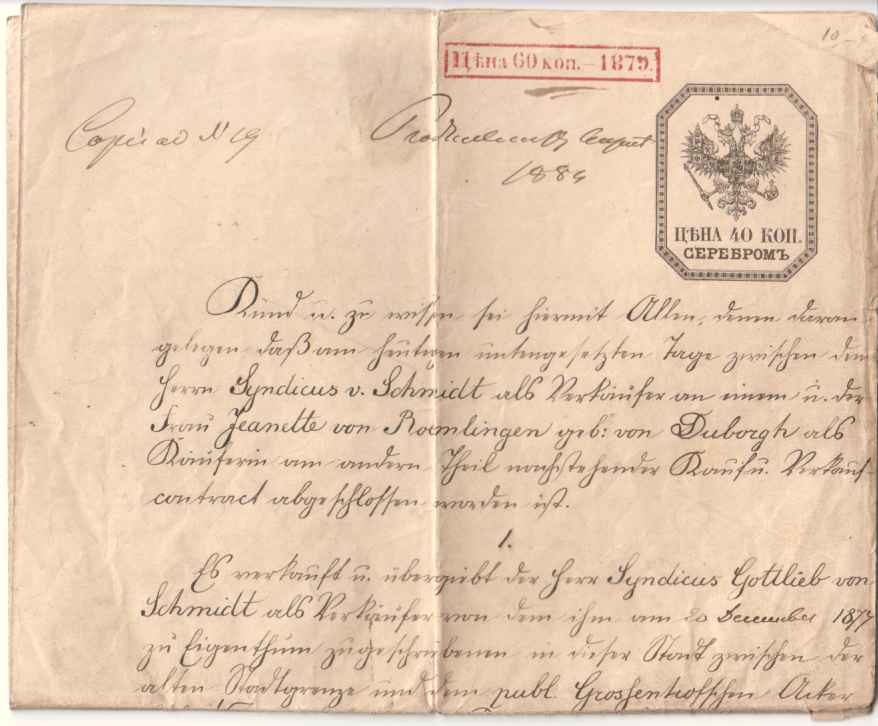 10.-
Цѣна 60 коп. — 1879.
Copia ad N 19
1884
ЦѢНА 40 КОП.
СЕРЕБРОМЪ
Kund u. zu wissen sei hiermit Allen, denen daran
gelegen daß am heutigen untengesetzten Tage zwischen dem
Herrn Syndicus v. Schmidt als Verkäufer an einem u. der
Frau Jeanette von Roemlingen geb: von Duborgh als
Käuferin am andern Theil nachstehender Kauf u. Verkauf-
contract abgeschlossen worden ist.
1.
Es verkauft u. übergiebt der Herr Syndicus Gottlieb von
Schmidt als Verkäufer von dem ihm am 20 December 1877
zu Eigenthum zugeschriebenen in dieser Stadt zwischen der
alten Stadtgrenze und dem publ. Grossenhofschen Acker